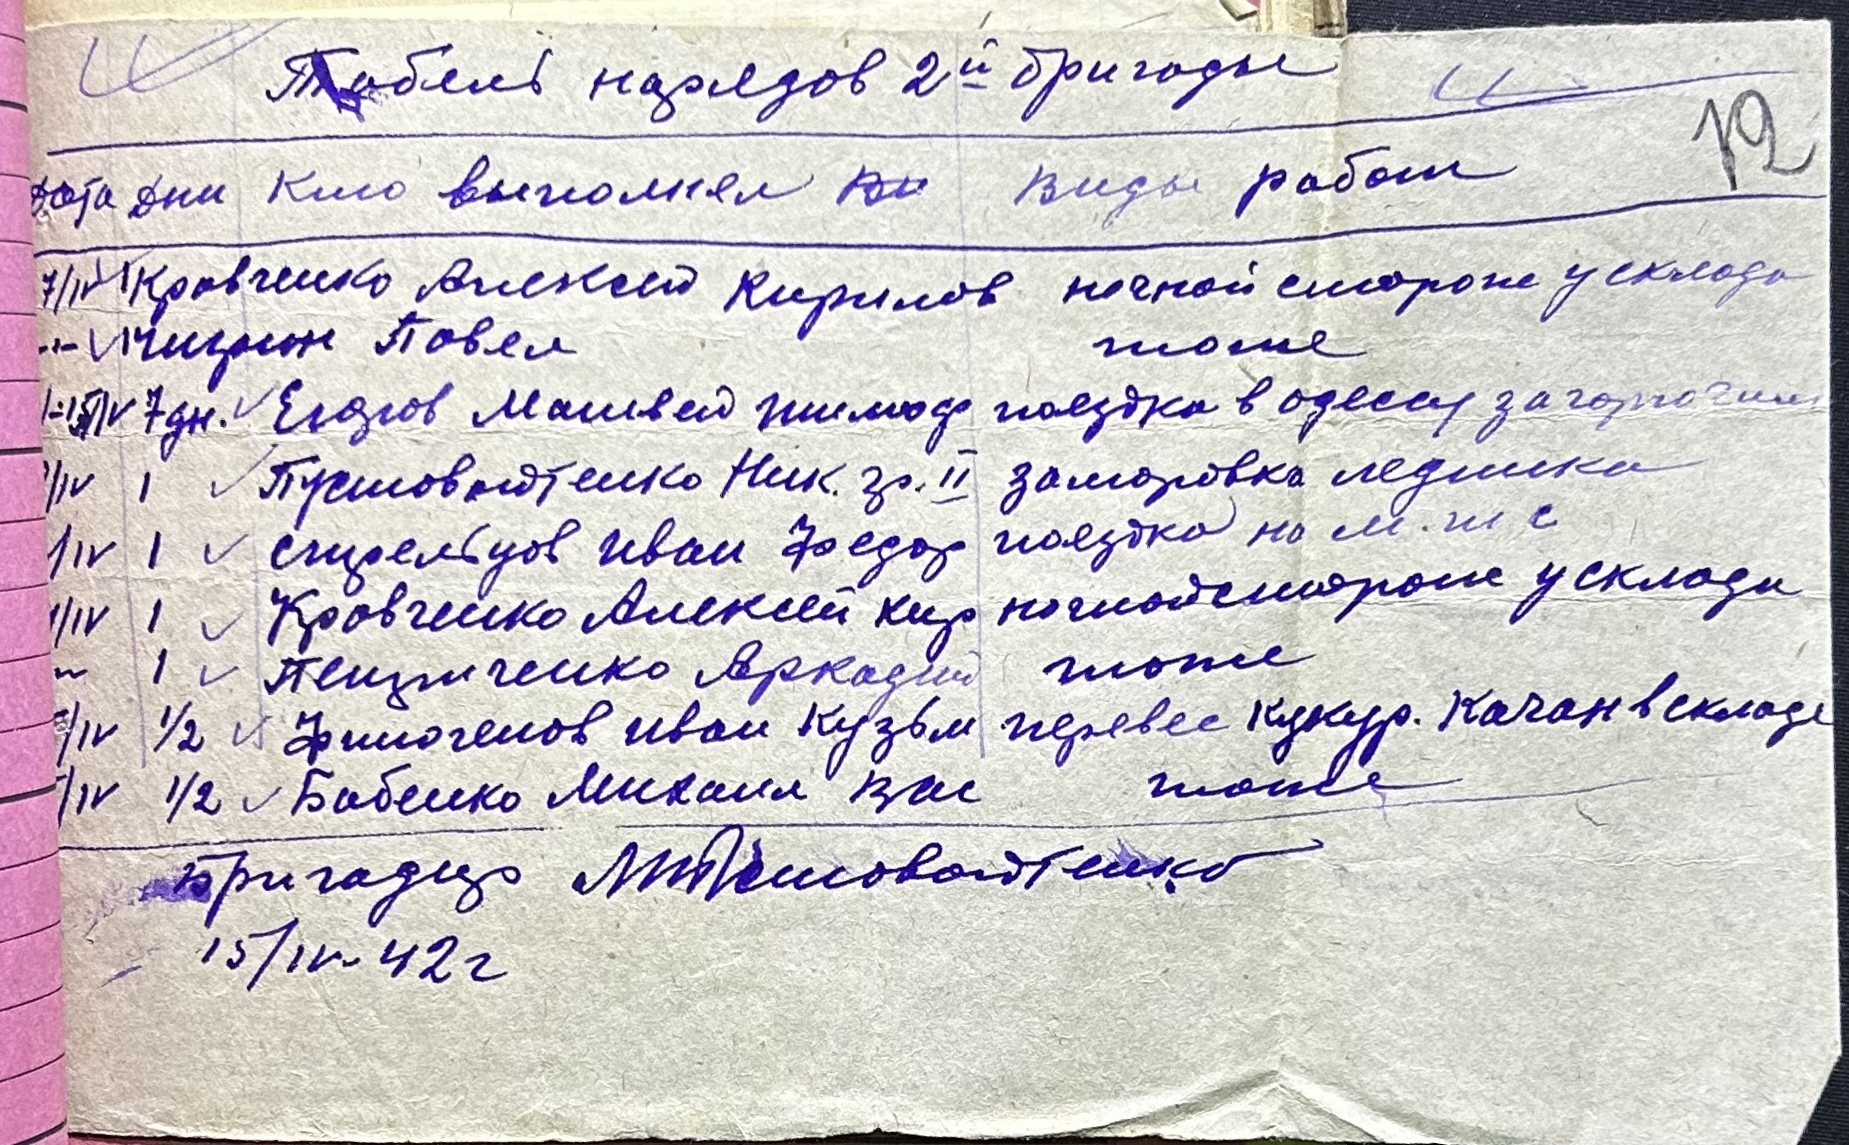 Табель нарядов 2й бригады
12
Дата Дни Кто выполнял Виды работ
7/IV 1 Кравченко Алексей Кирилов ночной сторож у склада
-"- 1 Павел тоже
7 дн. Матвей Тимоф поездка в одессу за горючим
/IV 1 Пустовойтенко Ник. гр. II ледника
/IV 1 стрельцов иван Федор поездка на м.т.с
/IV 1 Кравченко Алексей кир ночной сторож у склада
-"- 1 Аркадий тоже
/IV 1/2 Филогенов иван Кузьм перевес кукур. Качан в склад
/IV 1/2 Бабенко Михаил Вас тоже
Бригадир Пустовойтенко
15/IV-42г